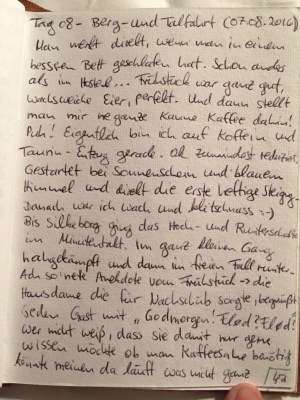 Tag 08 - Berg- und Talfahrt (07.08.2016)
Man merkt direkt, wenn man in einem
besseren Bett geschlafen hat. Schon anders
als im Hostel... Frühstück war ganz gut,
wachsweiche Eier, perfekt. Und dann stellt
man mir ne ganze Kanne Kaffee dahin!
Puh! Eigentlich bin ich auf Koffein und
Taurin-Entzug gerade. Ok zumindest reduziert.
Gestartet bei Sonnenschein und blauem
Himmel und direkt die erste heftige Steigung.
Danach war ich wach und klitschnass :-)
Bis Silkeborg ging das Hoch- und Runterschalten
im Minutentakt. Im ganz kleinen Gang
hochgekämpft und dann im freien Fall runter.
Ach so'nete Anekdote vom Frühstück → die
Hausdame die für Nachschub sorgte, begrüßt
jeden Gast mit "Godmorgen! Flød? Flød?
wer nicht weiß, dass sie damit nur gerne
wissen möchte ob man Kaffeesahne benötigt
könnte meinen da läuft was nicht ganz